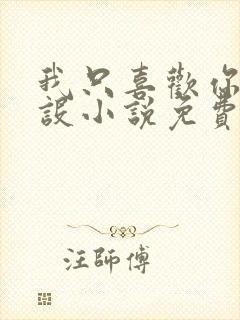 我只喜歡你
設小說免費
汪師傅